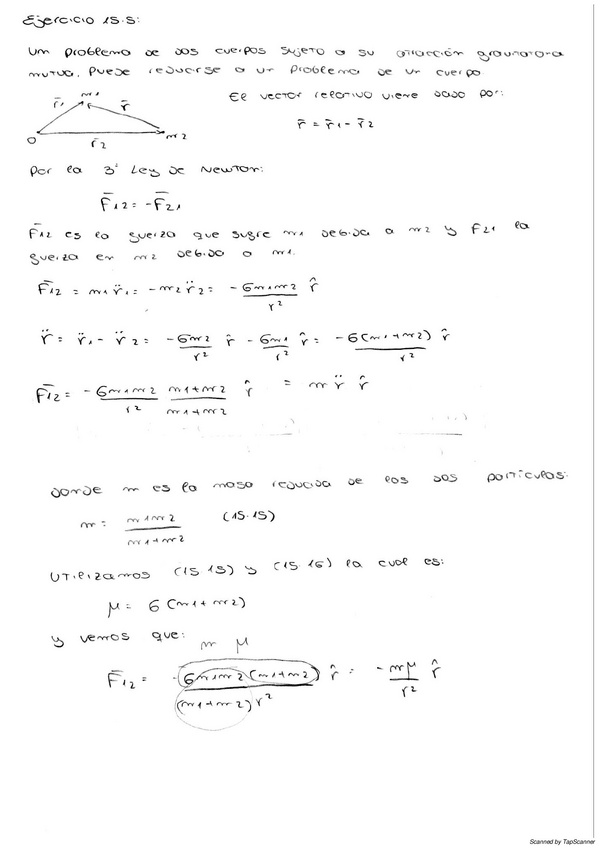 Ejercicio 15.5:
Un problema de dos cuerpos sujeto a su atracción gravitatoria
mutua, puede reducirse a un problema de un cuerpo.
El vector relativo viene dado por:
m1
r̄1
r̄
O
r̄2
m2
r̄ = r̄1 - r̄2
Por la 3ª Ley de Newton:
F̄12 = -F̄21
F̄12 es la fuerza que sufre m1 debida a m2 y F21 la
fuerza en m2 debida a m1.
F̄12 = m1 r̈1 = -m2 r̈2 = -Gm1m2/r² r̂
r̈ = r̈1 - r̈2 = -Gm2/r² r̂ - Gm1/r² r̂ = -G(m1+m2)/r² r̂
F̄12 = -Gm1m2/r² m1+m2/m1+m2 r̂ = m r̈ r̂
donde m es la masa reducida de las dos partículas:
m = m1m2/m1+m2 (15.15)
Utilizamos (15.15) y (15.16) la cual es:
μ = G(m1+m2)
y vemos que:
m μ
F̄12 = -Gm1m2(m1+m2)/(m1+m2)r² r̂ = -mμ/r² r̂
Scanned by TapScanner